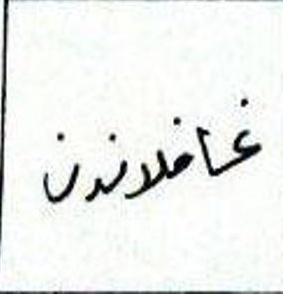 غافلاندن